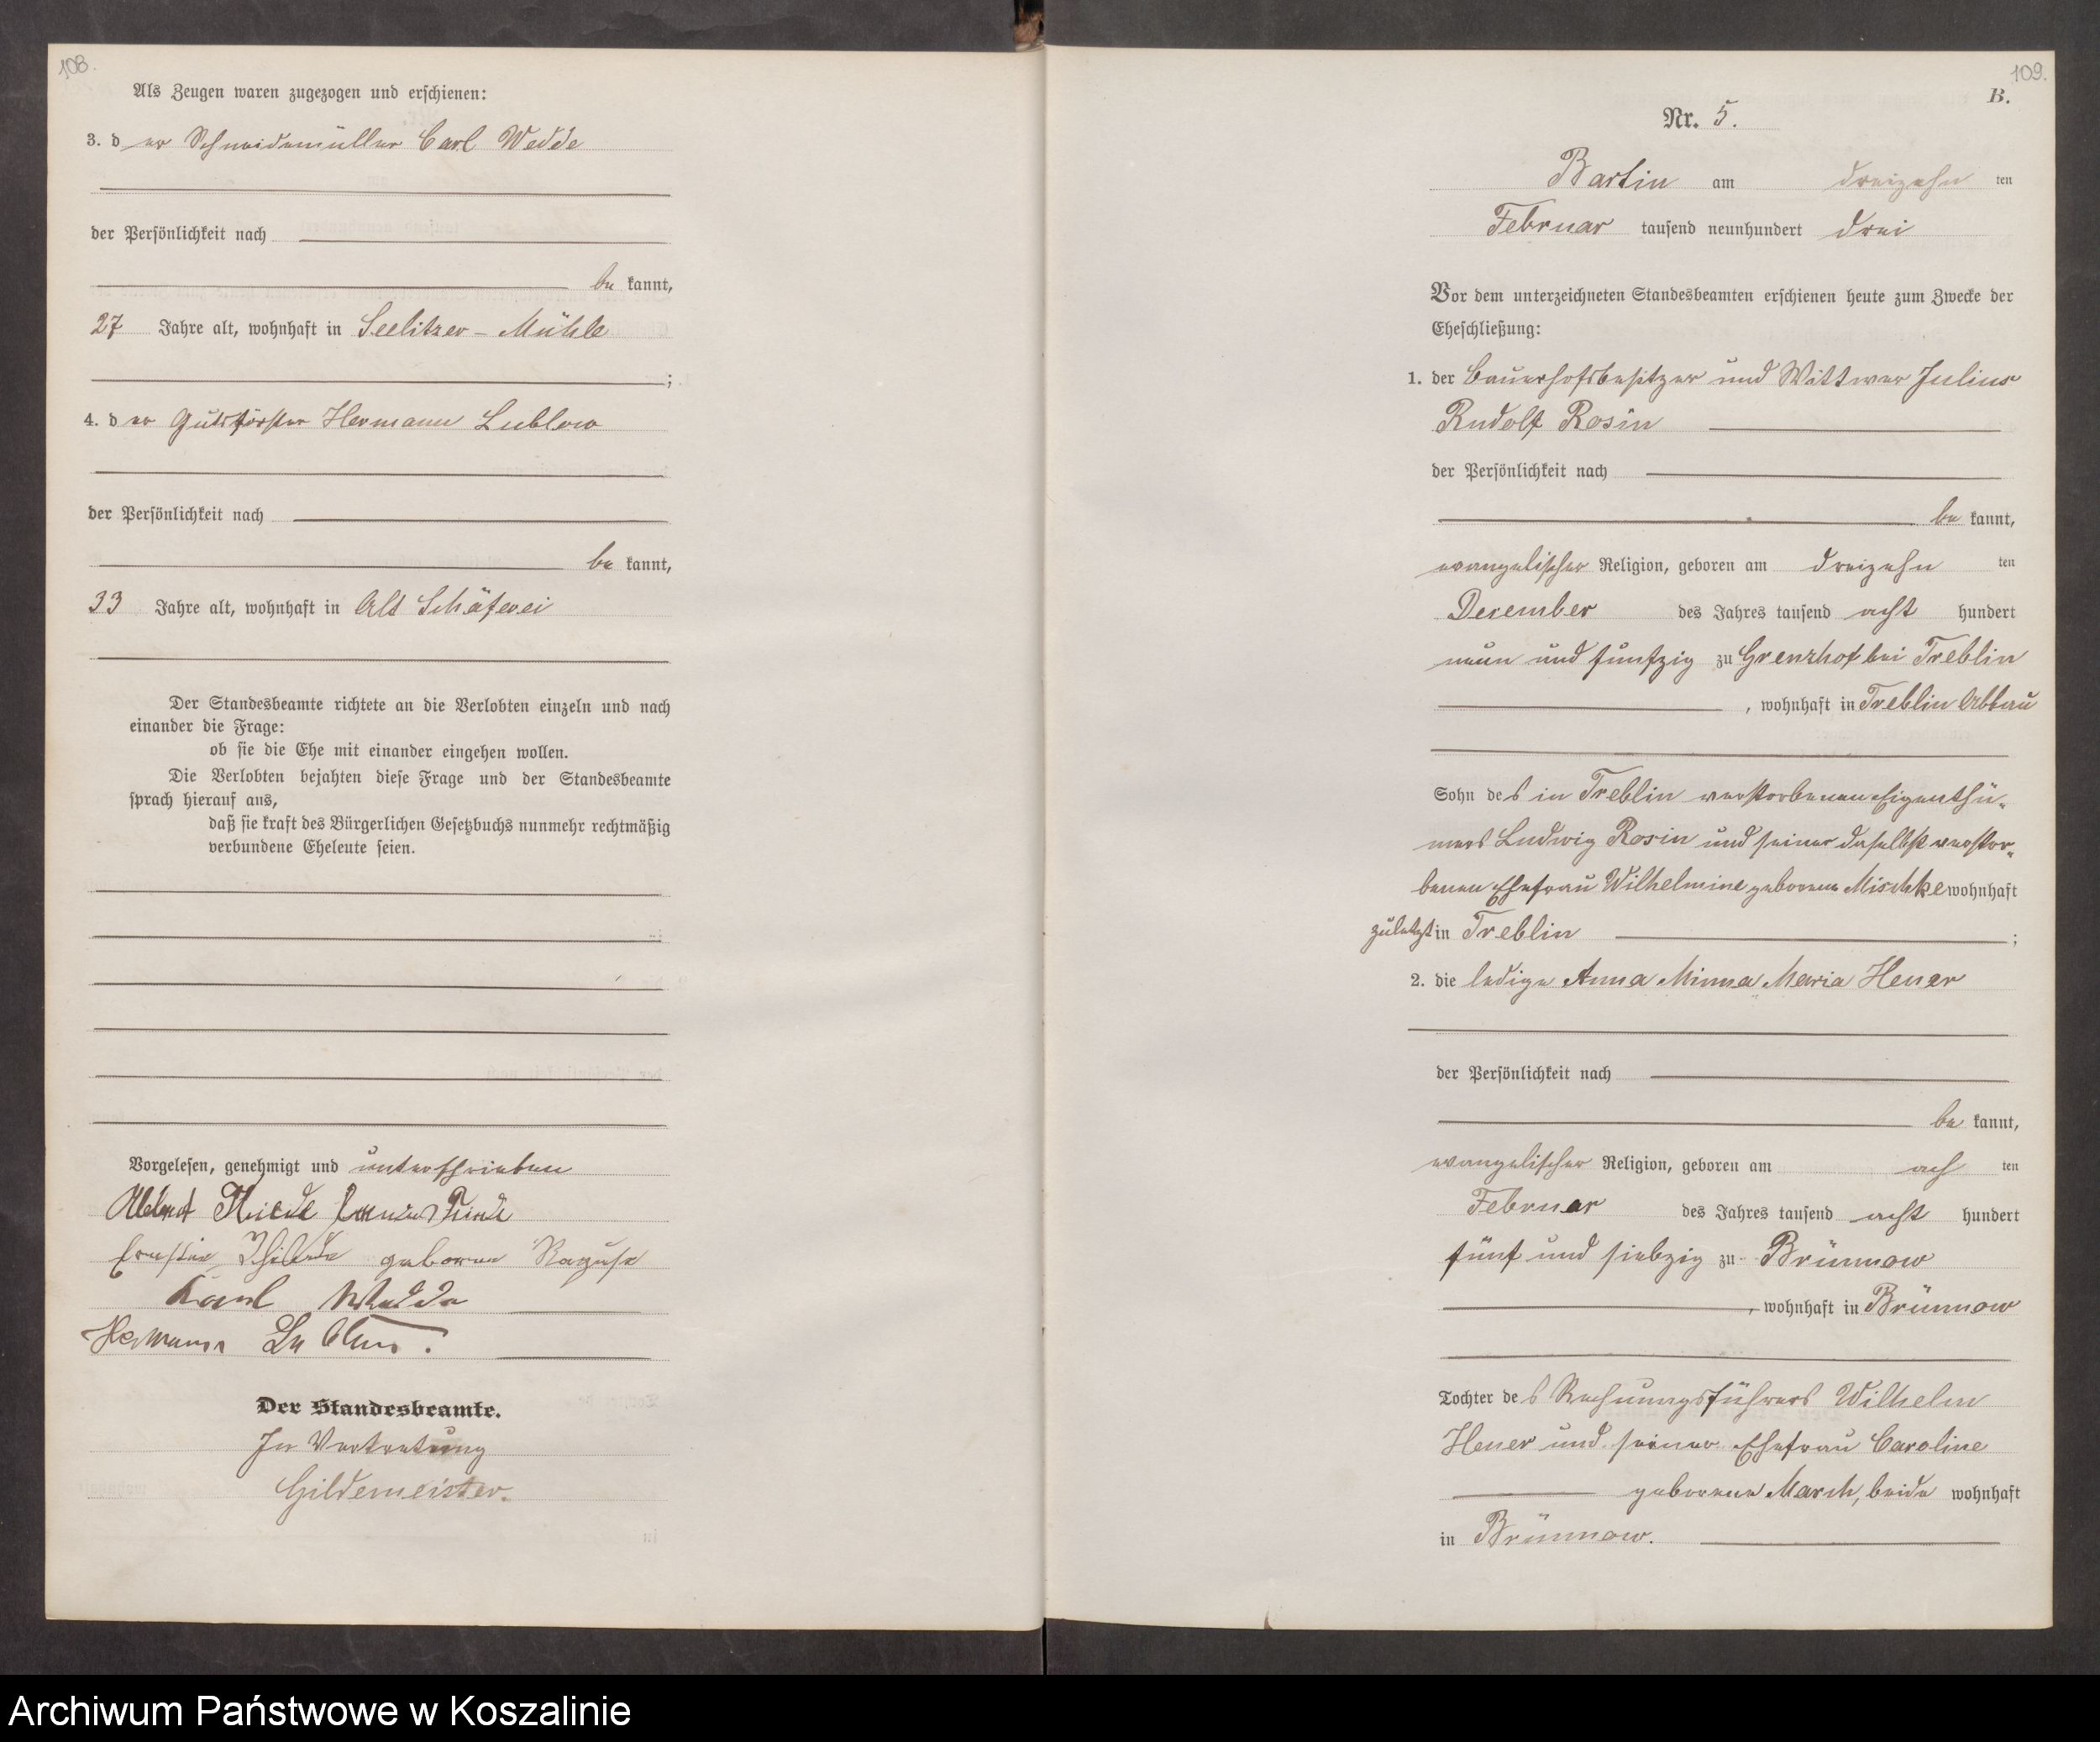 108.
Als Zeugen waren zugezogen und erschienen:
3. d er Schneidemüller Carl Wedde
der Persönlichkeit nach
be kannt,
27 Jahre alt, wohnhaft in Seelitzer-Mühle
;
4. d er Gutsförster Hermann Lublow
der Persönlichkeit nach
be kannt,
33 Jahre alt, wohnhaft in Alt Schäferei
Der Standesbeamte richtete an die Verlobten einzeln und nach
einander die Frage:
ob sie die Ehe mit einander eingehen wollen.
Die Verlobten bejahten diese Frage und der Standesbeamte
sprach hierauf aus,
daß sie kraft des Bürgerlichen Gesetzbuchs nunmehr rechtmäßig
verbundene Eheleute seien.
Vorgelesen, genehmigt und unterschrieben
geborene Raguse
Karl Wedde
Hermann Lublow.
Der Standesbeamte.
In Vertretung
Gildemeister.
109.
B.
Nr. 5.
Bartin am dreizehn ten
Februar tausend neunhundert drei
Vor dem unterzeichneten Standesbeamten erschienen heute zum Zwecke der
Eheschließung:
1. der Bauerhofsbesitzer und Wittwer Julius
Rudolf Rosin
der Persönlichkeit nach
be kannt,
evangelischer Religion, geboren am dreizehn ten
December des Jahres tausend acht hundert
neun und funfzig zu Grenzhof bei Treblin
, wohnhaft in Treblin Abbau
Sohn des in Treblin verstorbenen Eigenthü-
mers Ludwig Rosin und seiner daselbst verstor-
benen Ehefrau Wilhelmine geborene Mischke wohnhaft
zuletzt in Treblin ;
2. die ledige Anna Minna Maria Hener
der Persönlichkeit nach
be kannt,
evangelischer Religion, geboren am ach ten
Februar des Jahres tausend acht hundert
fünf und siebzig zu Brünnow
, wohnhaft in Brünnow
Tochter des Rechnungsführers Wilhelm
Hener und seiner Ehefrau Caroline
geborene March, beide wohnhaft
in Brünnow.
Archiwum Państwowe w Koszalinie